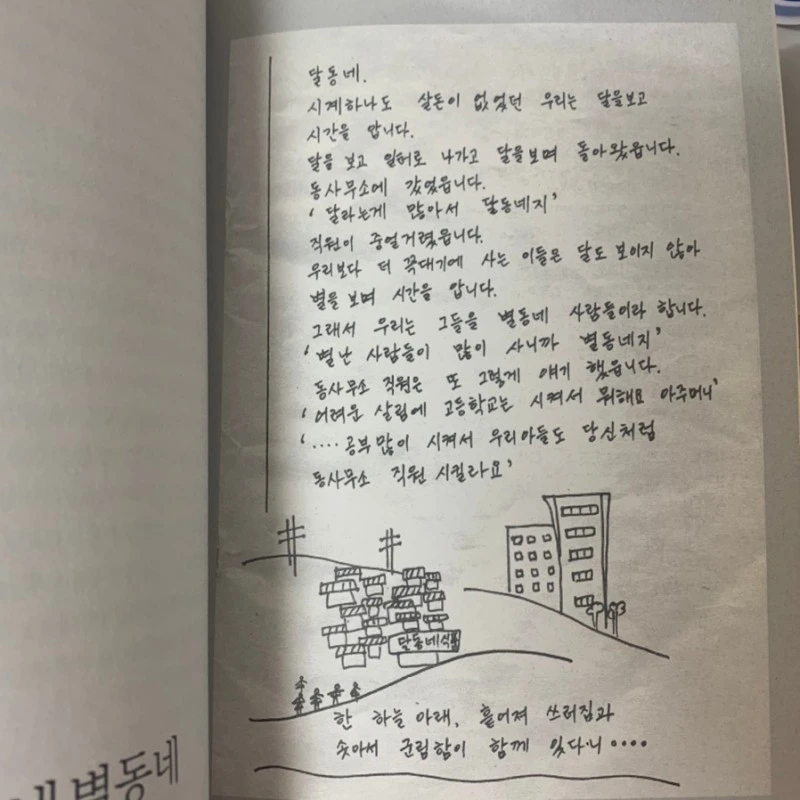 달동네.
시계하나도 살돈이 없었던 우리는 달을보고
시간을 압니다.
달을 보고 일터로 나가고 달을보며 돌아왔읍니다.
동사무소에 갔었읍니다.
‘달라는게 많아서 달동네지’
직원이 중얼거렸읍니다.
우리보다 더 꼭대기에 사는 이들은 달도 보이지 않아
별을 보며 시간을 압니다.
그래서 우리는 그들을 별동네 사람들이라 합니다.
‘별난 사람들이 많이 사니까 별동네지’
동사무소 직원은 또 그렇게 얘기 했읍니다.
‘어려운 살림에 고등학교는 시켜서 뭐해요 아주머니’
‘····공부많이 시켜서 우리아들도 당신처럼
동사무소 직원 시킬라요’
달동네식품
한 하늘 아래, 흩어져 쓰러짐과
솟아서 군림함이 함께 있다니····
별동네